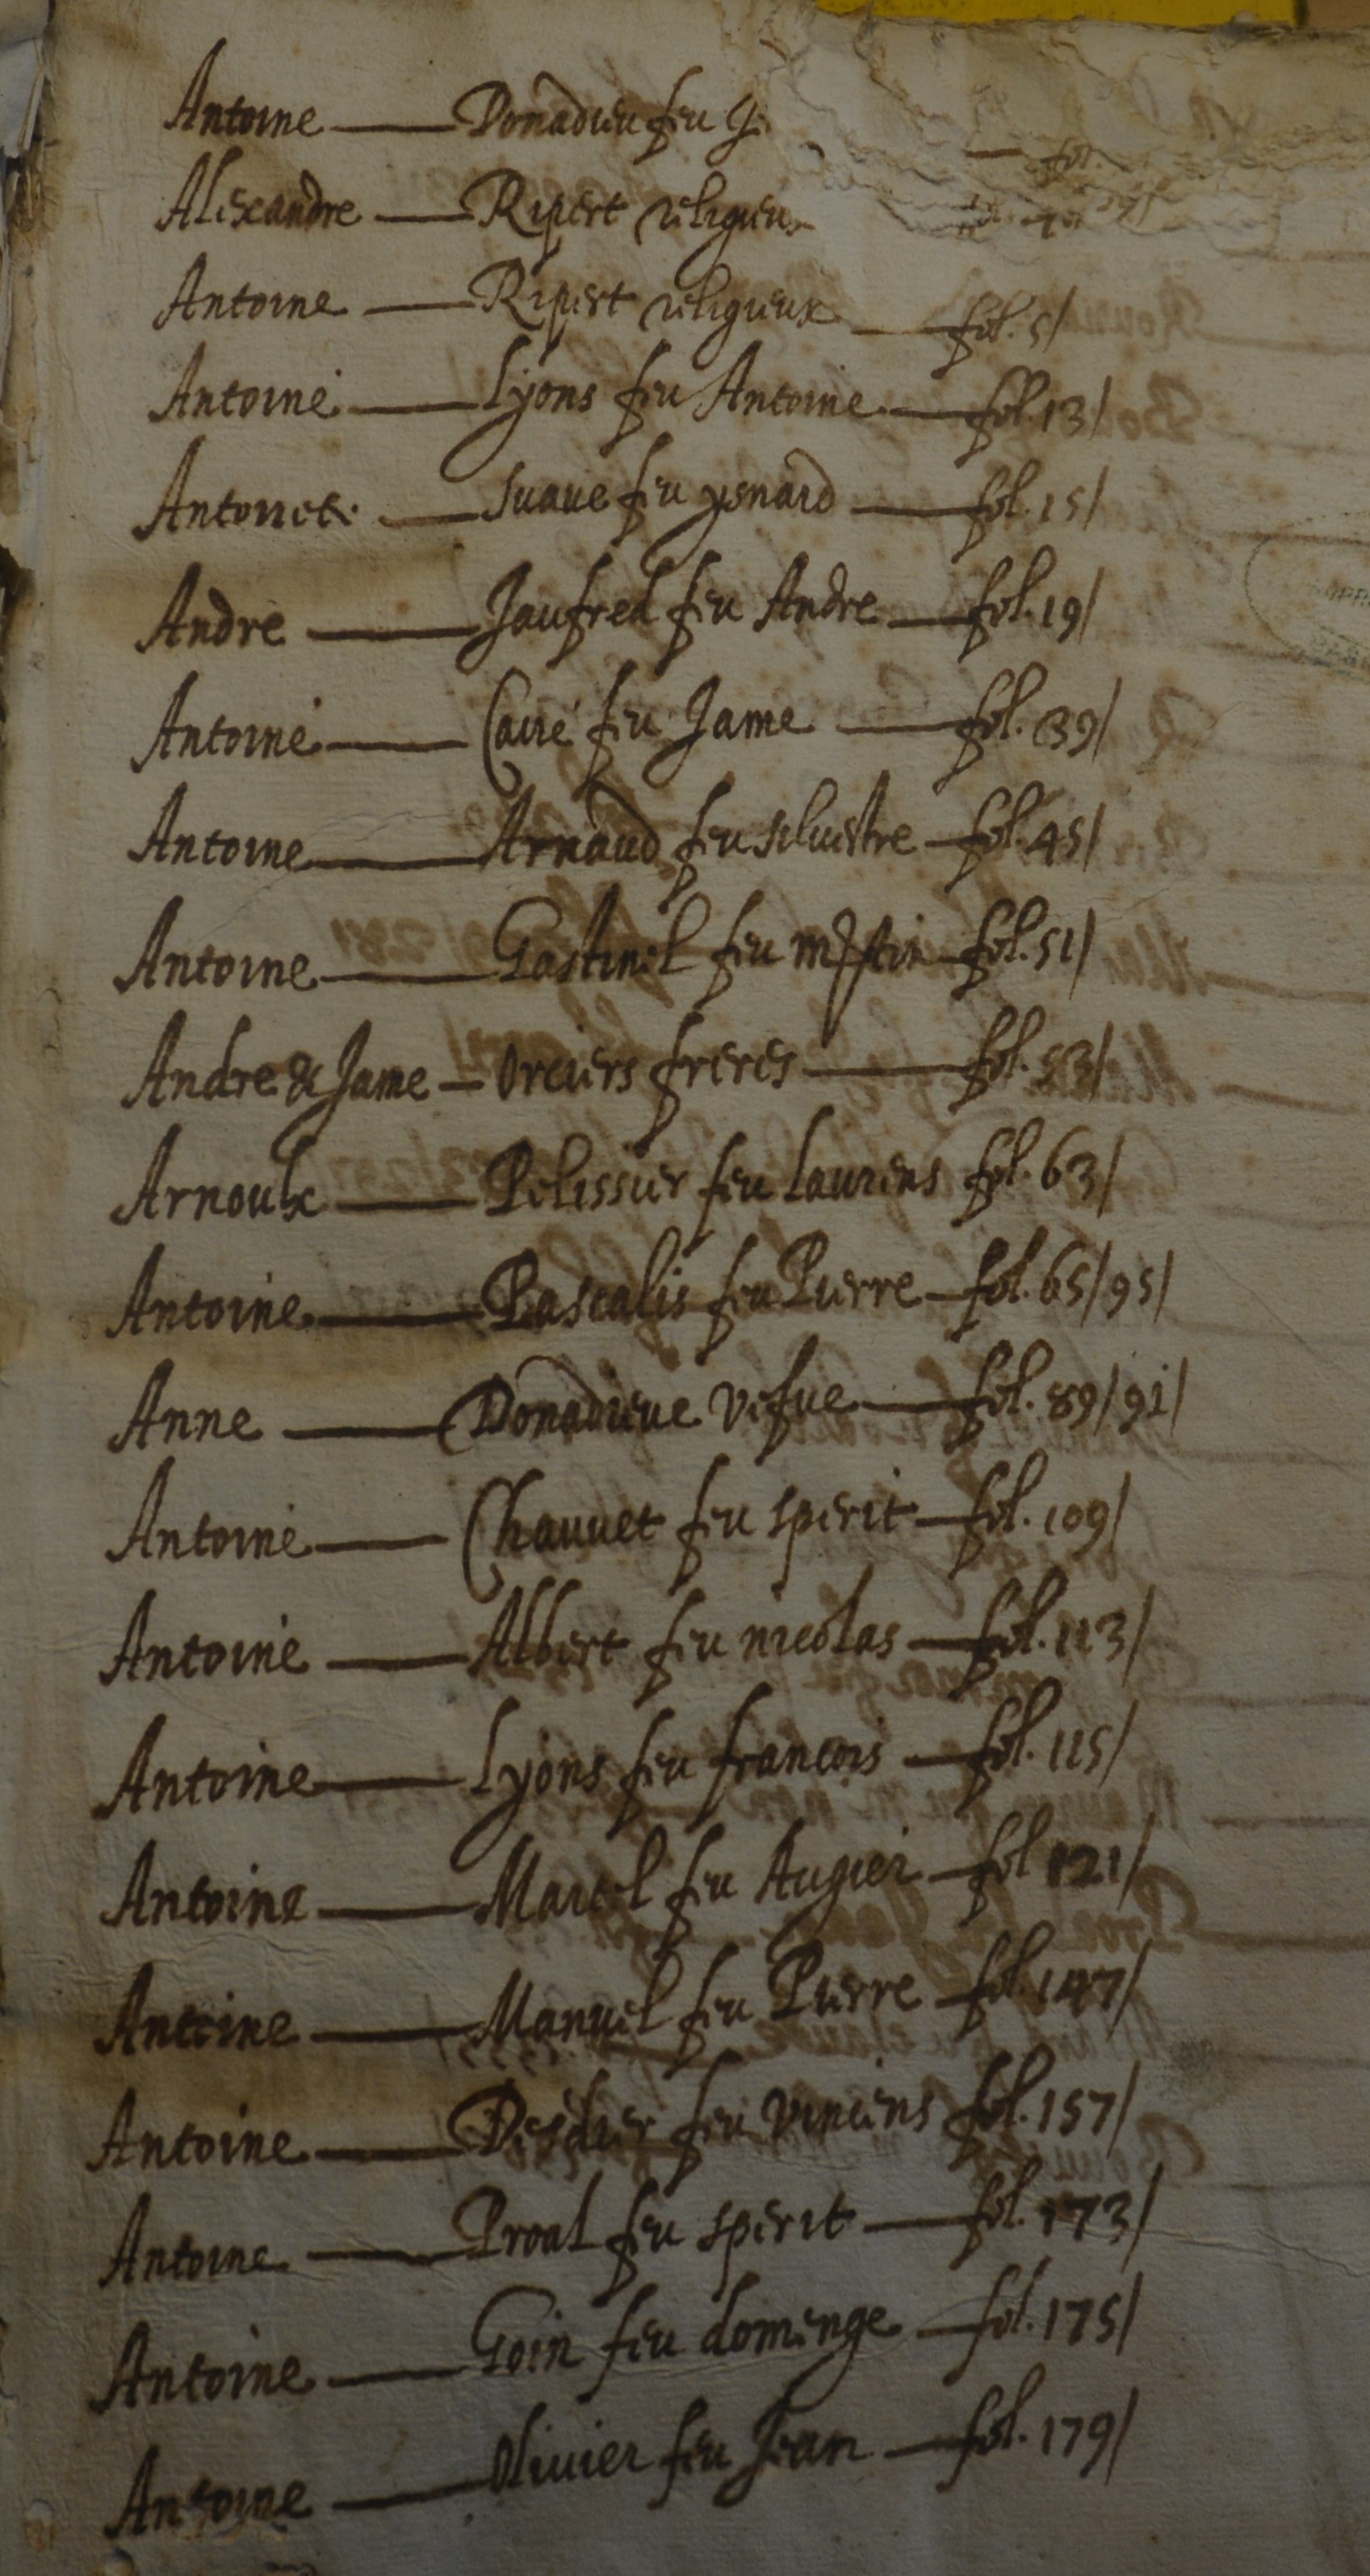 Antoine — Donadieu feu J
Alexandre — Ripert religieux
Antoine — Ripert religieux — fol. 5/
Antoine — Lyons feu Antoine — fol. 13/
Antoine — Suaue feu ysnard — fol. 15/
Andre — Jaufred feu Andre — fol. 19/
Antoine — Caire feu Jame — fol. 39/
Antoine — Arnaud feu siluestre — fol. 45/
Antoine — Gastinel feu — fol. 51/
Andre & Jame — Orciers freres — fol. 53/
Arnoulx — Pelissier feu Laurens fol. 63/
Antoine — Pascalis feu Pierre — fol. 65/95/
Anne — Donadieue vefue — fol. 89/91/
Antoine — Chauuet feu sperit — fol. 109/
Antoine — Albert feu nicolas — fol. 113/
Antoine — Lyons feu francois — fol. 115/
Antoine — Marcel feu Augier — fol 121/
Antoine — Manuel feu Pierre — fol. 147/
Antoine — Disdier feu vincens fol. 157/
Antoine — Proal feu sperit — fol. 173/
Antoine — Goin feu domenge — fol. 175/
Antoine — Oliuier feu Jean — fol. 179/